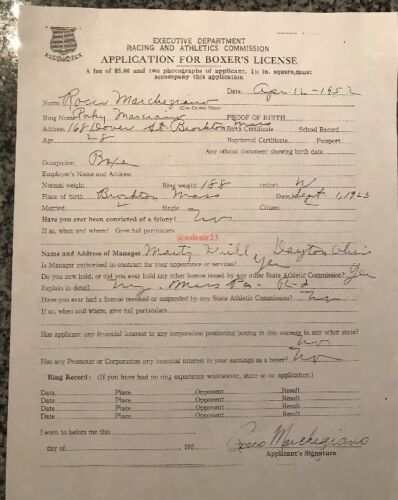 EXECUTIVE DEPARTMENT
RACING AND ATHLETICS COMMISSION
APPLICATION FOR BOXER'S LICENSE
A fee of $5.00 and two photographs of applicant, 1½ in. square, must
accompany this application.
Date Apr. 12-1952
Name Rocco Marchegiano
Ring Name Rocky Marciano PROOF OF BIRTH
Address 168 Dover St Brockton Mass Birth Certificate School Record
Age 28 Baptismal Certificate Passport
Any official document showing birth date
Occupation Boxer
Employer's Name and Address
Normal weight Ring weight 188 (color) W
Place of birth Brockton Mass Date Sept. 1, 1923
Married Single Citizen
Have you ever been convicted of a felony? No
If so, when and where? Give full particulars
@solcair23
Name and Address of Manager Marty Weill Dayton Ohio
Is Manager authorized to contract for your appearance or services? Yes
Do you now hold, or did you ever hold any other license issued by any other State Athletic Commission? Yes
Explain in detail N.Y. - Mass Pa - R-I
Have you ever had a license revoked or suspended by any State Athletic Commission? No
If so, when and where, give full particulars
Has applicant any financial interest in any corporation promoting boxing in this state or in any other state?
No
Has any Promoter or Corporation any financial interest in your earnings as a boxer? No
Ring Record: (If you have had no ring experience whatsoever, state so on application.)
Date Place Opponent Result
Date Place Opponent Result
Date Place Opponent Result
Date Place Opponent Result
Sworn to before me this
day of 195 Rocco Marchegiano
Applicant's Signature